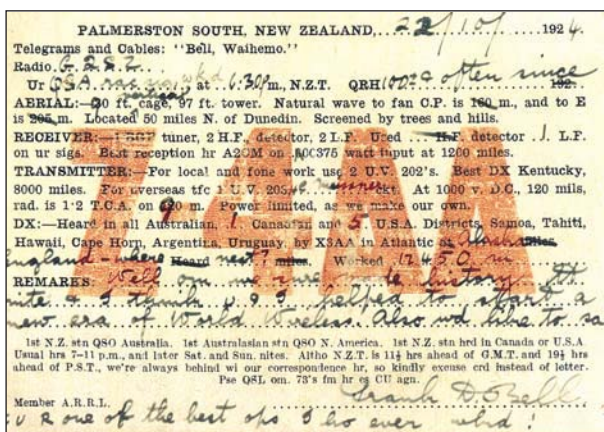 PALMERSTON SOUTH, NEW ZEALAND, 22/10/ 1924.
Telegrams and Cables: "Bell, Waihemo."
Radio G.2SZ
Ur at 6.30 p.m., N.Z.T. QRH often since 192
AERIAL:— ft. cage, 97 ft. tower. Natural wave to fan C.P. is 160 m., and to E
is m. Located 50 miles N. of Dunedin. Screened by trees and hills.
RECEIVER:— tuner, 2 H.F., detector, 2 L.F. Used H.F. detector 1 L.F.
on ur sigs. Best reception hr on watt input at 1200 miles.
TRANSMITTER:—For local and fone work use 2 U.V. 202's. Best DX Kentucky,
8000 miles. For overseas tfc 1 U.V. At 1000 v. D.C., 120 mils,
rad. is 1·2 T.C.A. on m. Power limited, as we make our own.
DX:—Heard in all Australian, 1 Canadian and 5 U.S.A. Districts, Samoa, Tahiti,
Hawaii, Cape Horn, Argentina, Uruguay, by X3AA in Atlantic at Alaska
England - where next? Heard miles. Worked 12450 m
REMARKS: Well om history. It
nite & I think u & I helped to start a
new era of World Wireless. Also wd like to sa
Z 4AA
1st N.Z. stn QSO Australia. 1st Australasian stn QSO N. America. 1st N.Z. stn hrd in Canada or U.S.A.
Usual hrs 7–11 p.m., and later Sat. and Sun. nites. Altho N.Z.T. is 11½ hrs ahead of G.M.T. and 19½ hrs
ahead of P.S.T., we're always behind wi our correspondence hr, so kindly excuse crd instead of letter.
Pse QSL om. 73's fm hr es CU agn.
Frank D. Bell
Member A.R.R.L.
u r one of the best ops I ho ever wkd!